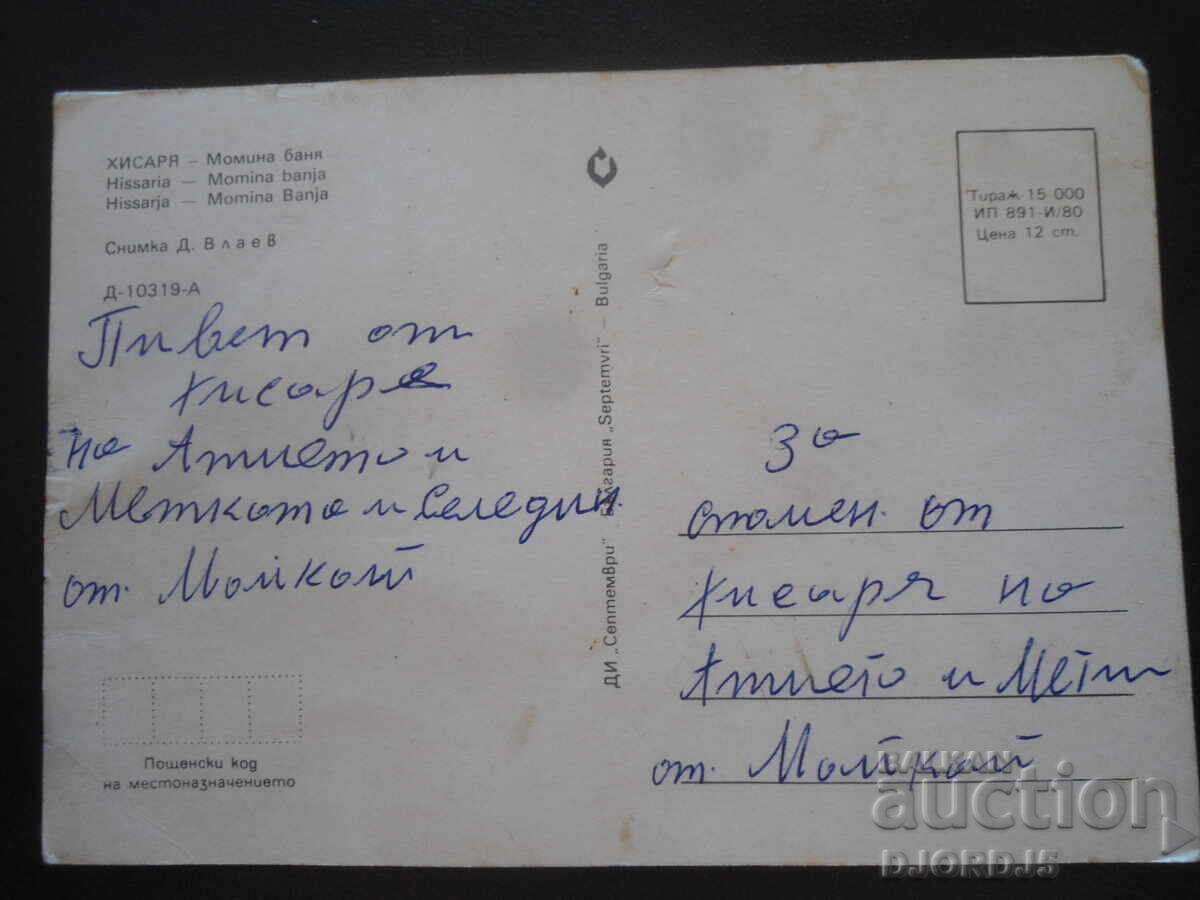 ХИСАРЯ – Момина баня
Hissaria — Momina banja
Hissarja — Momina Banja
Снимка Д. Влаев
Д-10319-А
Пивет от
Хисаре
на Атието и
Меткото и Селедин.
от.
Пощенски код
на местоназначението
ДИ „Септември" – България „Septemvri" — Bulgaria
Тираж 15 000
ИП 891-И/80
Цена 12 ст.
За
спомен. от
Хисаря на
Атието и Мети
от.
BALKAN
auction
DJORDJ5